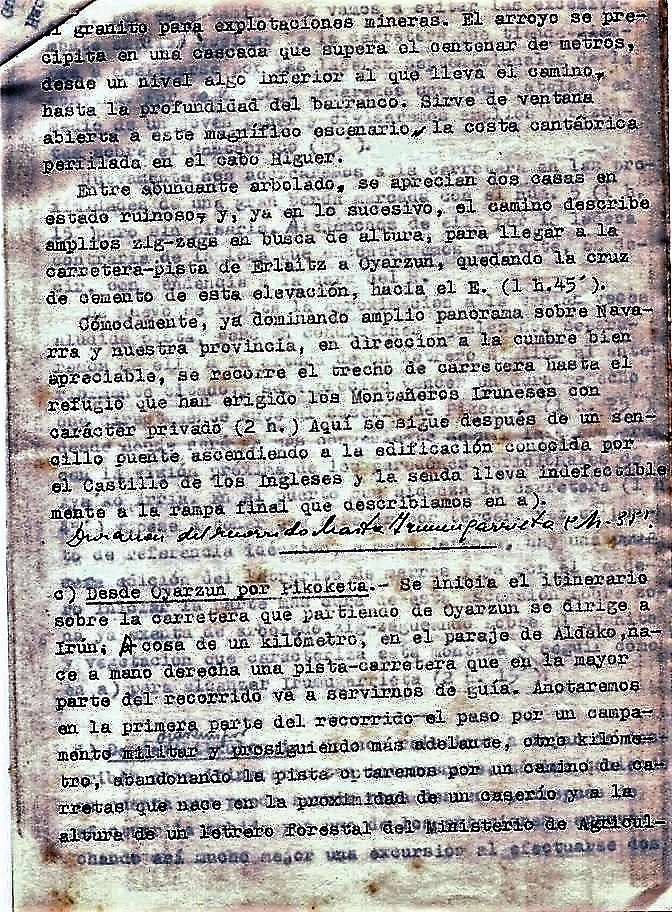 granito para explotaciones mineras. El arroyo se pre-
cipita en una cascada que supera el centenar de metros,
desde un nivel algo inferior al que lleva el camino,
hasta la profundidad del barranco. Sirve de ventana
abierta a este magnífico escenario, la costa cantábrica
perfilada en el cabo Higuer.
Entre abundante arbolado, se aprecian dos casas en
estado ruinoso, y, ya en lo sucesivo, el camino describe
amplios zig-zags en busca de altura, para llegar a la
carretera-pista de Erlaitz a Oyarzun, quedando la cruz
de cemento de esta elevación, hacia el E. (1 h.45´).
Cómodamente, ya dominando amplio panorama sobre Nava-
rra y nuestra provincia, en dirección a la cumbre bien
apreciable, se recorre el trecho de carretera hasta el
refugio que han erigido los Montañeros Iruneses con
carácter privado (2 h.) Aquí se sigue después de un sen-
cillo puente ascendiendo a la edificación conocida por
el Castillo de los Ingleses y la senda lleva indefectible
mente a la rampa final que describíamos en a).
Duración del recorrido hasta Irumugarrieta
c) Desde Oyarzun por Pikoketa.- Se inicia el itinerario
sobre la carretera que partiendo de Oyarzun se dirige a
Irun. A cosa de un kilómetro, en el paraje de Aldako, na-
ce a mano derecha una pista-carretera que en la mayor
parte del recorrido va a servirnos de guía. Anotaremos
en la primera parte del recorrido el paso por un campa-
mento militar y prosiguiendo más adelante, otro kilóme-
tro, abandonando la pista optaremos por un camino de ca-
rretas que nace en la proximidad de un caserío y a la
altura de un letrero forestal del Ministerio de Agricul-